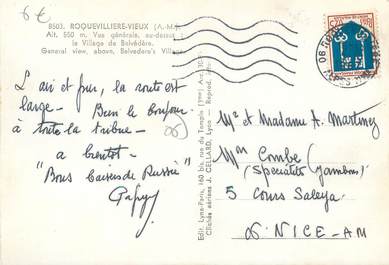 6€
8503. ROQUEVILLIERE-VIEUX (A.-M.)
Alt. 550 m. Vue générale, au-dessus :
le Village de Belvédère.
General view, above, Belvedere's Village
L'air est pur, la route est
large - Bien le bonjour
à toute la tribu -
à bientôt -
"Bons baisers de Russie"
06
Edit. Lyna-Paris, 160 bis, rue du Temple (3me) Arc. 30
Clichés aériens J. CELLARD, Lyon. Reprod.
06 ROQ
Mr et Madame A. Martinez
Mon Combe
(Spécialité Jambons)
5 Cours Saleya
06 NICE-AM